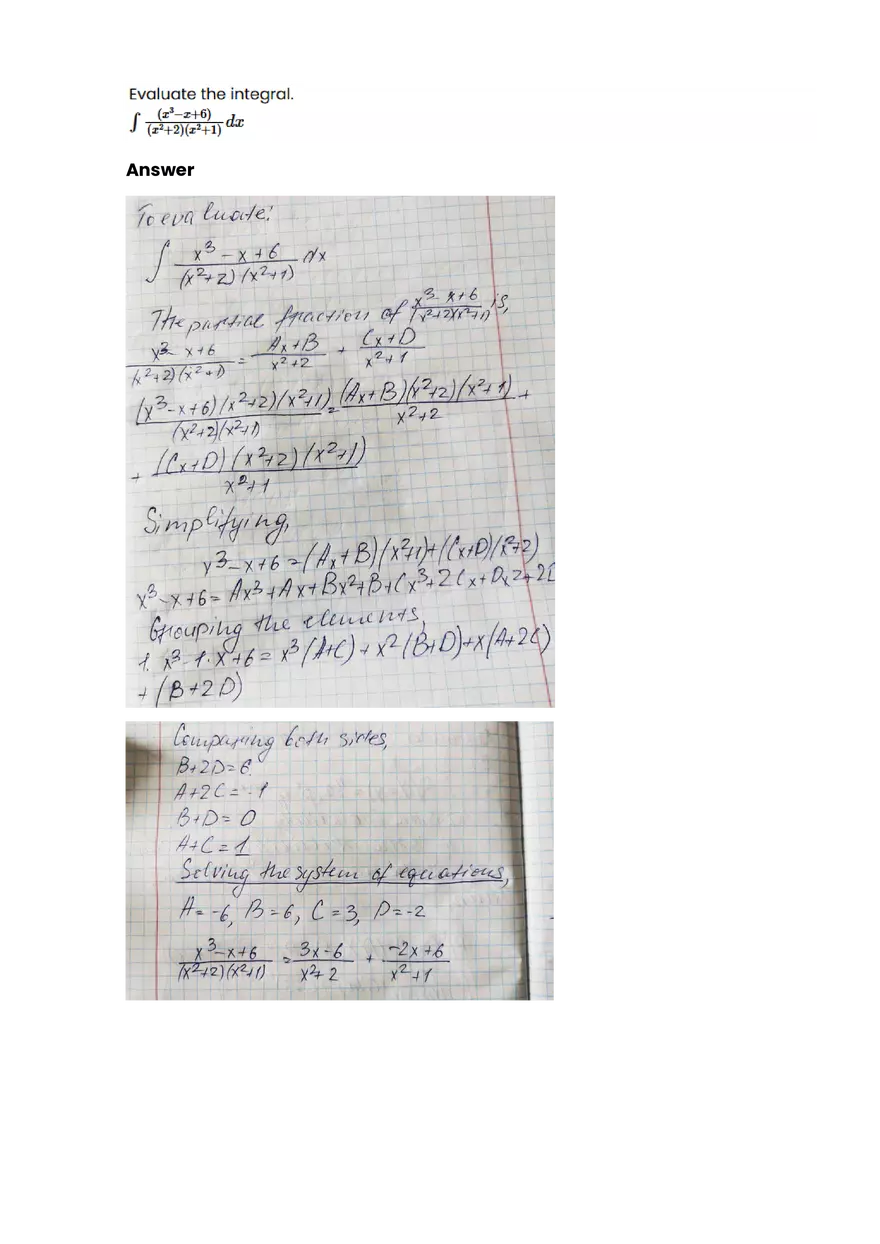 Evaluate the integral.
∫ (x³−x+6)/((x²+2)(x²+1)) dx
Answer
To evaluate:
∫ (x³ − x + 6)/((x²+2)(x²+1)) dx
The partial fraction of (x³ − x+6)/((x²+2)(x²+1)) is,
(x³ − x+6)/((x²+2)(x²+1)) = (Ax+B)/(x²+2) + (Cx+D)/(x²+1)
((x³−x+6)(x²+2)(x²+1))/((x²+2)(x²+1)) = ((Ax+B)(x²+2)(x²+1))/(x²+2) +
+ ((Cx+D)(x²+2)(x²+1))/(x²+1)
Simplifying,
x³−x+6 = (Ax+B)(x²+1)+(Cx+D)(x²+2)
x³−x+6 = Ax³+Ax+Bx²+B+Cx³+2Cx+Dx²+2D
Grouping the elements,
1. x³−1·x+6 = x³(A+C)+x²(B+D)+x(A+2C)
+ (B+2D)
Comparing both sides,
B+2D=6
A+2C=-1
B+D=0
A+C=1
Solving the system of equations,
A=-6, B=6, C=3, D=-2
(x³−x+6)/((x²+2)(x²+1)) = (3x-6)/(x²+2) + (-2x+6)/(x²+1)